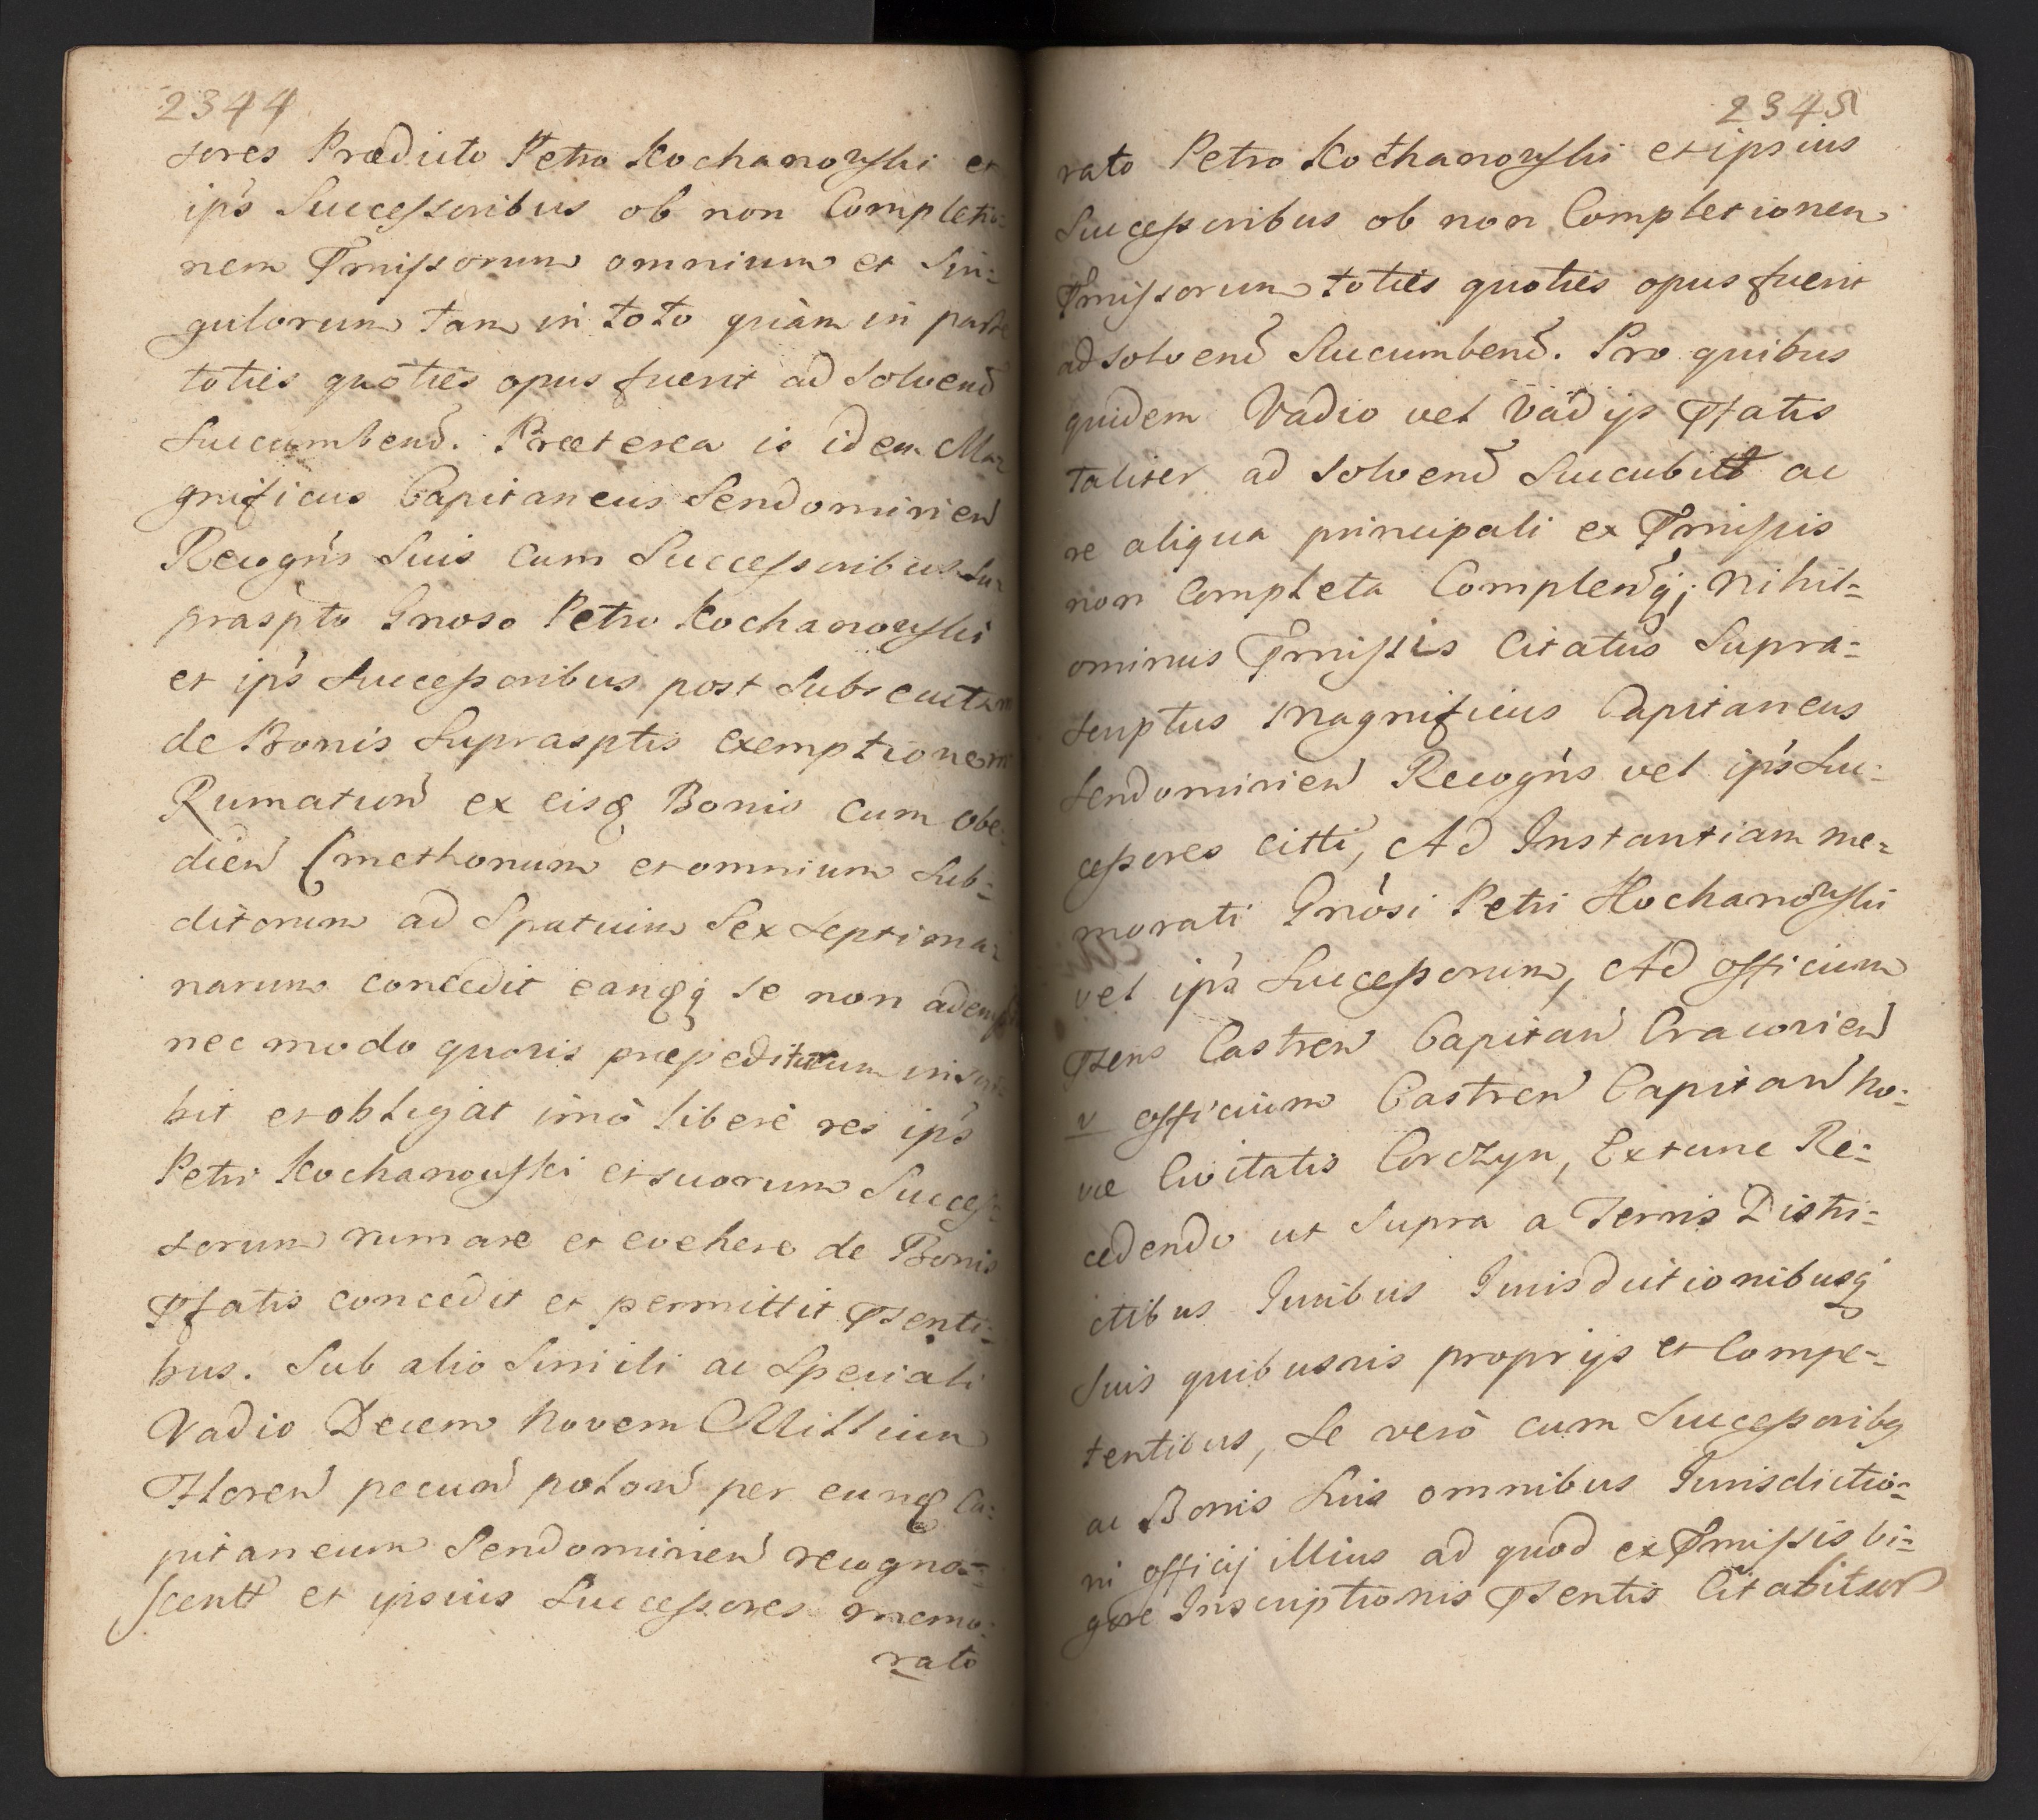 2344
sores Prædicto Petro Kochanowski et
ips Successoribus ob non Completio=
nem Pmissorum omnium et Sin=
gulorum tam in toto quàm in parte
toties quoties opus fuerit ad solvend
Succumbend. Præterea is idem Ma=
gnificus Capitaneus Sendomirien
Recogns suis cum Successoribus su=
praspto Gnoso Petro Kochanowski
et ips Successoribus post subsecutam
de Bonis suprasptis exemptionem
Rumation ex eisq Bonis cum obe=
dien Cmethonum et omnium sub=
ditorum ad Spatium Sex septima=
narum concedit eandq se non
nec modo quovis præpediturum inscri=
bit et obligat imò liberè res ips
Petri Kochanowski et suorum Succes=
sorum rumare et evehere de Bonis
Pfatis concedit et permittit Psenti=
bus. Sub alio simili ac speciali
Vadio Decem Novem Millium
Floren pecun polon per eundq Ca=
pitaneum Sendomirien recogno=
scentt et ipsius Successores memo=
rato
2345
rato Petro Kochanowski et ipsius
Successoribus ob non Completionem
Pmissorum toties quoties opus fuerit
ad solvend Succumbend. Pro quibus
quidem Vadio vel Vadijs Pfatis
taliter ad solvend Succubitt ac
re aliqua principali ex Pmissis
non Completa Complendq; Nihil=
ominus Pmissis Citatus Supra=
scriptus Magnificus Capitaneus
Sendomirien Recogns vel ips Suc=
cessores citti, Ad Instantiam me=
morati Gnosi Petri Kochanowski
vel ips Successorum, Ad officium
Psens Castren Capitan Cracovien
v officium Castren Capitan No=
væ Civitatis Corczyn, Extunc Re=
cedendo ut supra a Terris Distri=
ctibus Juribus Jurisdictionibusq
suis quibusvis proprijs et Compe=
tentibus, Se verò cum Successoribq
ac Bonis suis omnibus Jurisdictio=
ni officij illius ad quod ex Pmissis vi=
gore Inscriptionis Psentis Citabitur